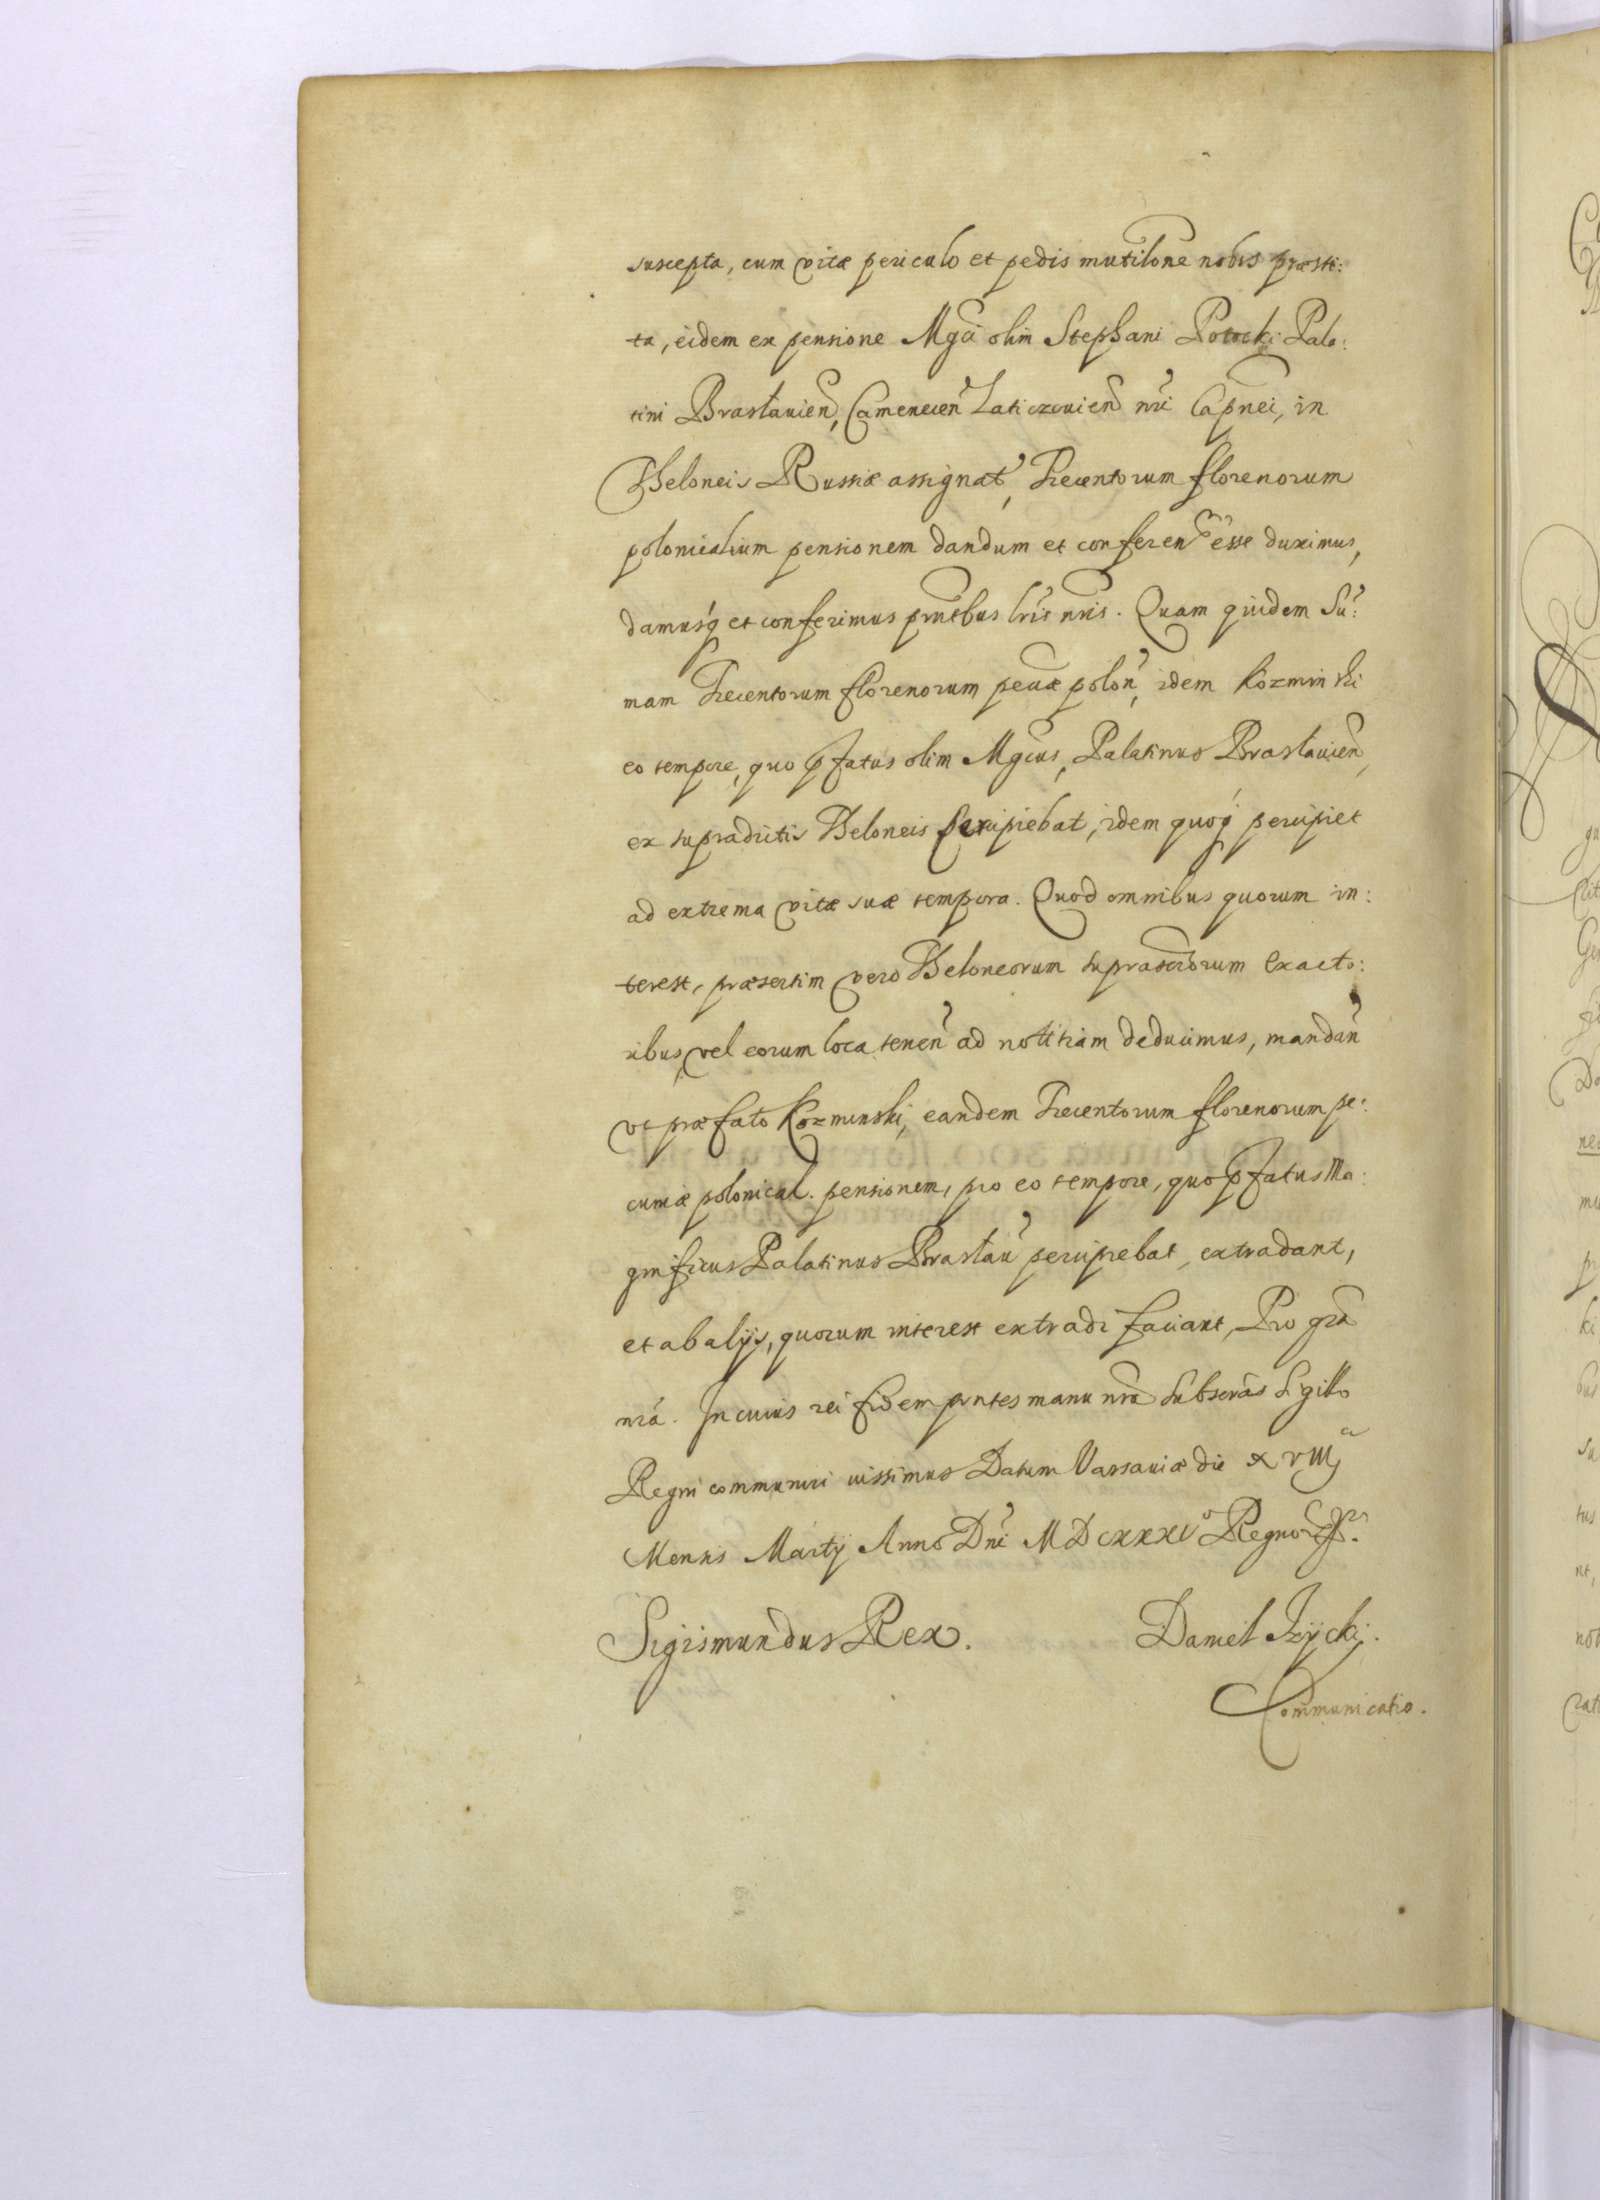 suscepta, cum vitæ periculo et pedis mutilone nobis præsti:
ta, eidem ex pensione Mgci olim Stephani Potocki Pala:
tini Braslavien, Camenecen Laticzovien nri Capnei, in
Theloneis Russiæ assignat, Trecentorum florenorum
polonicalium pensionem dandum et conferen esse duximus,
damusq et conferimus pntibus lris nris. Quam quidem Su:
mam Trecentorum florenorum pecuæ polon, idem Kozminski
eo tempore, quo pfatus olim Mgcus, Palatinus Braslavien,
ex supradictis Theloneis percipiebat, idem quoq percipiet
ad extrema vitæ suæ tempora. Quod omnibus quorum in:
terest, præsertim vero Theloneorum suprascriorum Exacto:
ribus, vel eorum loca tenen ad notitiam deducimus, mandan
vt præfato Kozminski, eandem Trecentorum florenorum pe:
cuniæ polonical. pensionem, pro eo tempore, quo pfatus Ma:
gnificus Palatinus Braslau percipiebat, extradant,
et ab alijs, quorum interest extradi faciant, Pro gra
nra. In cuius rei fidem pntes manu nra Subscras Sigillo
Regni communiri iussimus Datum Varsaviæ die XVIIIa
Mensis Martij Anno Dni MDCXXXI Regnor
Sigismundus Rex. Daniel Izycki.
Communicatio.